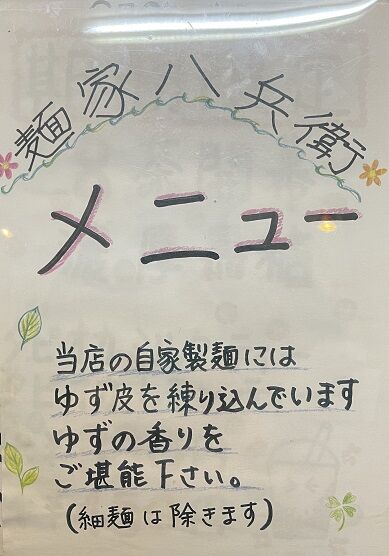 麺家八兵衛
メニュー
当店の自家製麺には
ゆず皮を練り込んでいます
ゆずの香りを
ご堪能下さい。
(細麺は除きます)